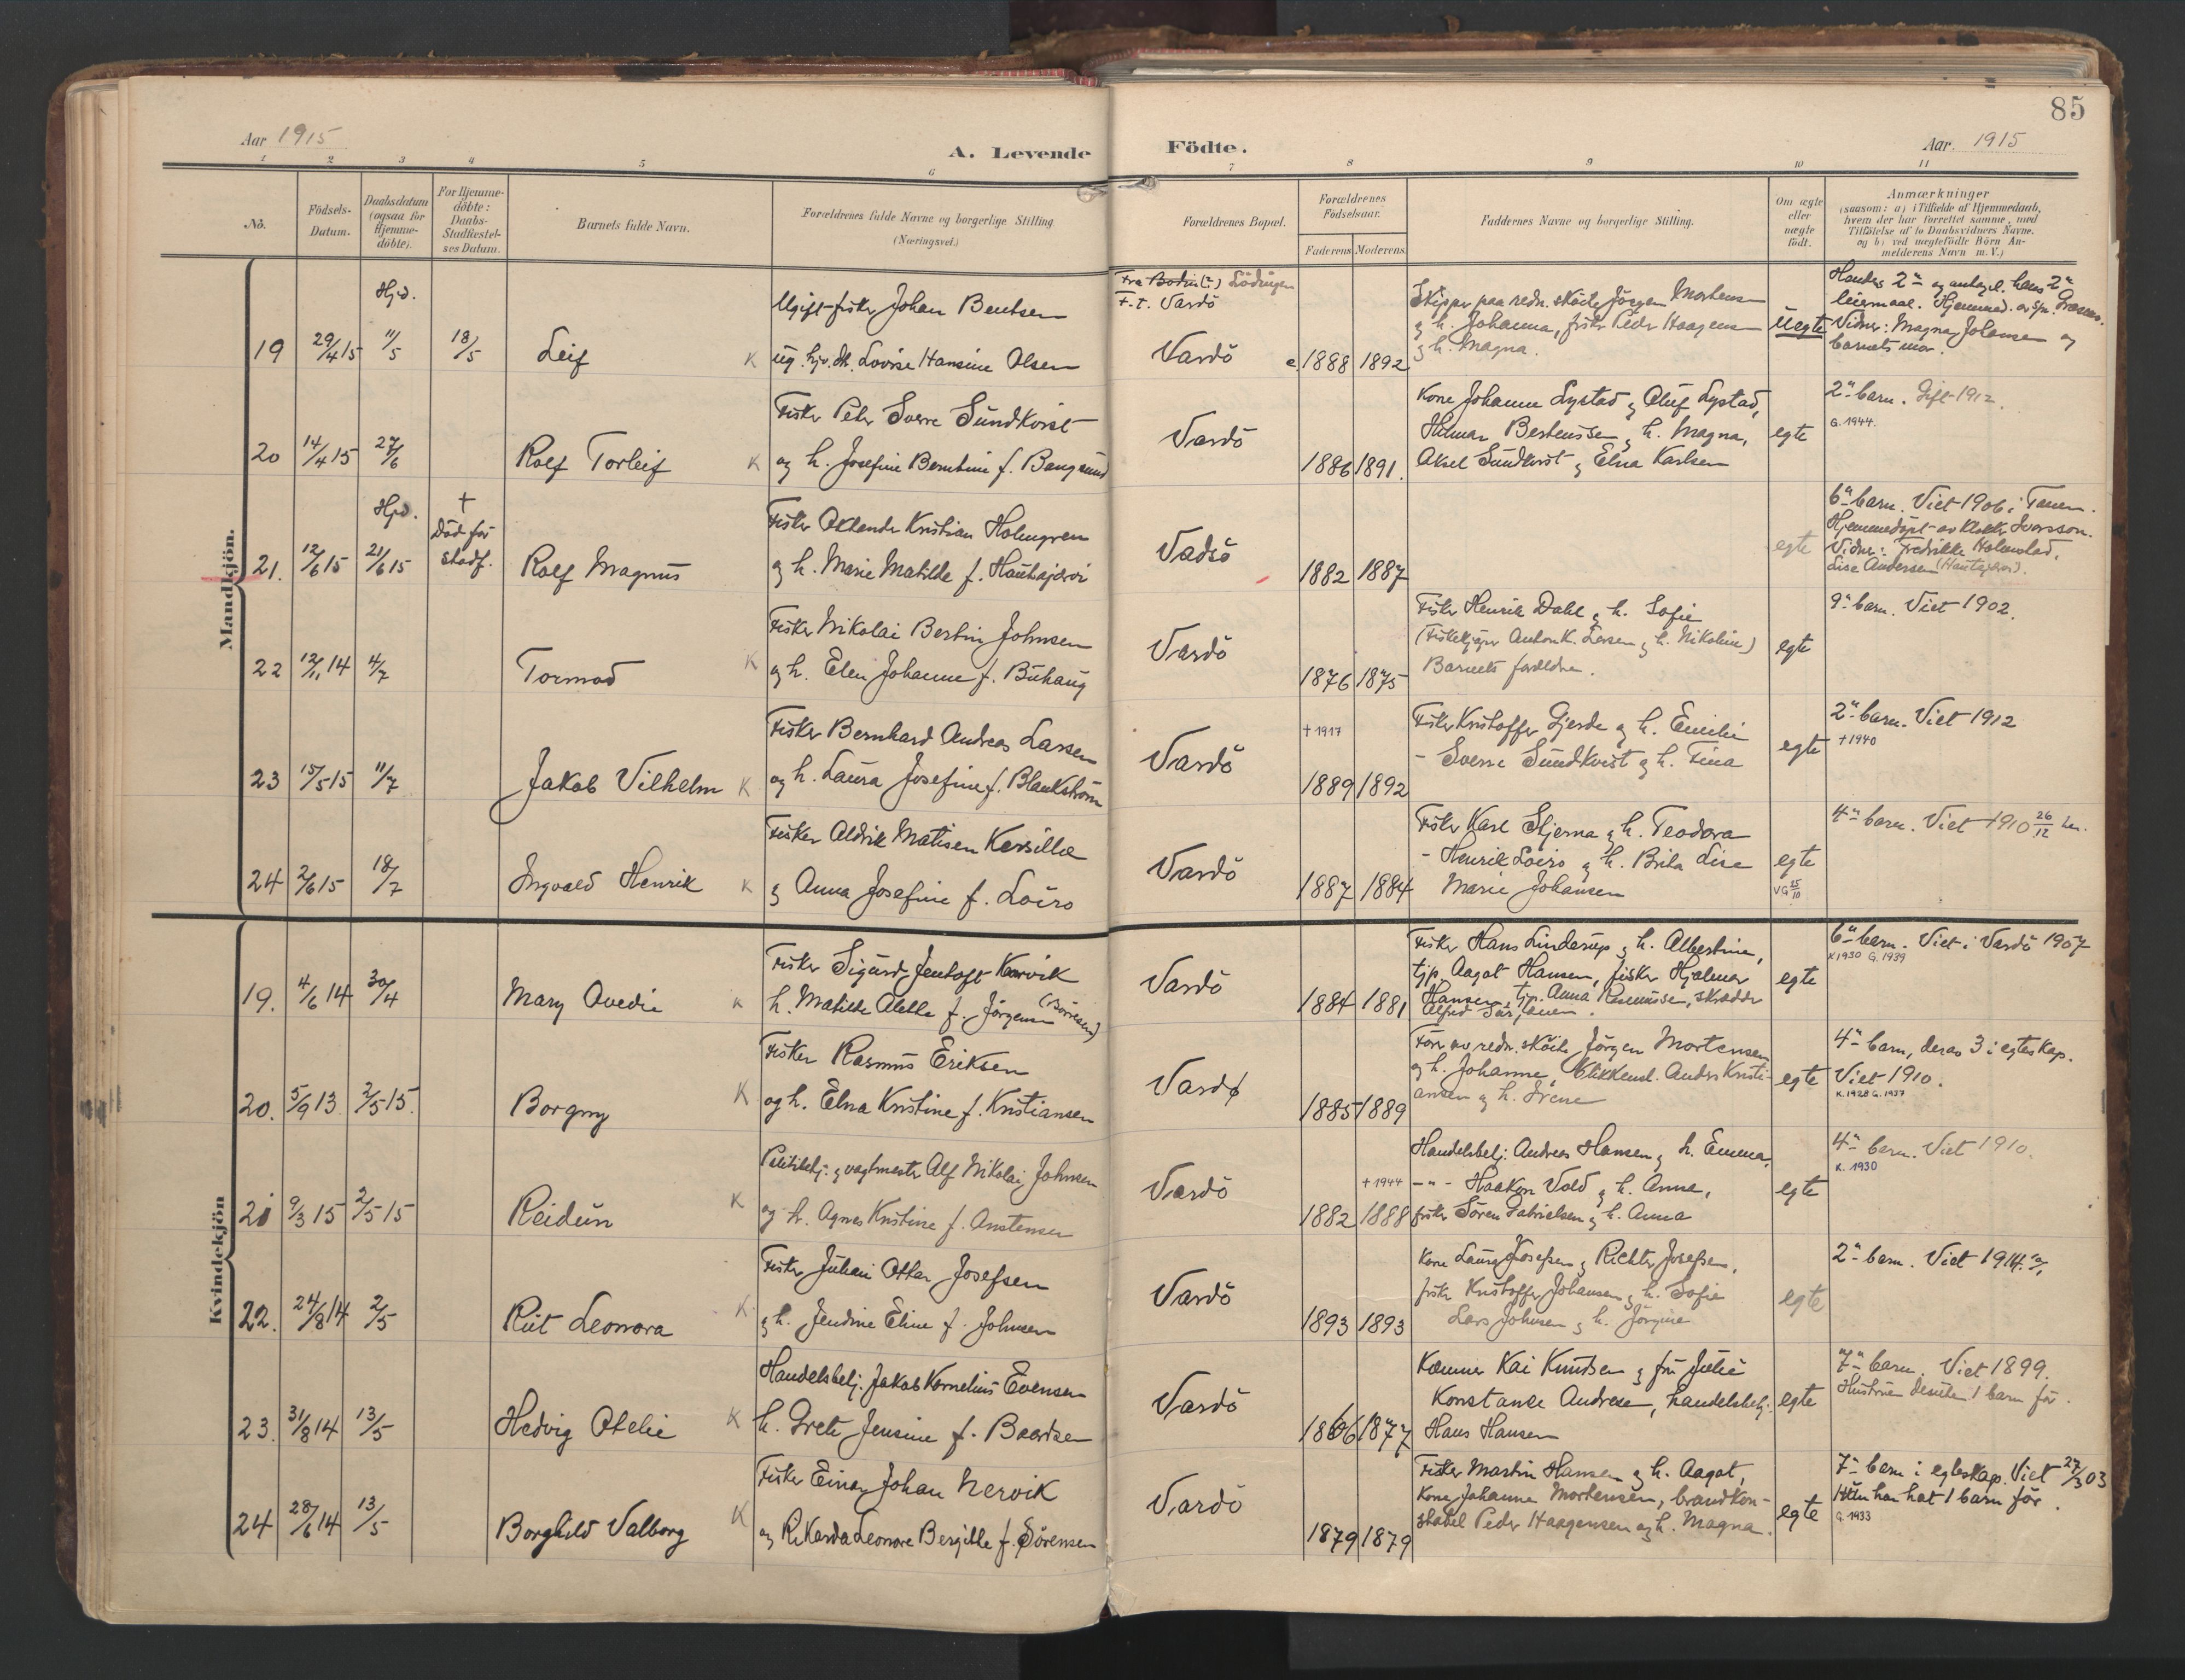 85
Aar 1915
A. Levende Födte.
Aar. 1915
1 2 3 4 5 6 7 8 9 10 11
No.
Födsels-
Datum.
Daabsdatum
(ogsaa for
Hjemme-
döbte).
For Hjemme-
döbte:
Daabs-
Stadfestel-
ses Datum.
Barnets fulde Navn.
Forældrenes fulde Navne og borgerlige Stilling
(Næringsvei.)
Forældrenes Bopæl.
Forældrenes
Födselsaar.
Faderens Moderens
Faddernes Navne og borgerlige Stilling.
Om ægte
eller
uægte
födt.
Anmærkninger
(saasom: a) i Tilfælde af Hjemmedaab,
hvem der har forrettet samme, med
Tilföielse af to Daabsvidners Navne.
og b) ved uægtefödte Börn An-
melderens Navn m. V.)
Mandkjön.
19 29/4 15 Hjd. 11/5 18/5 Leif K
Ugift fisker Johan Bentsen
ug. hjv. dt. Lovise Hansine Olsen
Fra Bodin(?) Lödingen
F. t. Vardö
Vardö
1888 1892
Skipper paa redn. sköite Jörgen Mortensen
og h. Johanna, fisker Peder Haagensen
og h. Magna.
Uegte
Vidner: Magna Johansen og
barnets mor.
20 14/4 15 27/6 Rolf Torleif K
Fisker Peter Sverre Sundkvist
og h. Josefine Berntine f. Bangsund
Vardö
1886 1891.
Kone Johanne Lystad og Oluf Lystad,
Hilmar Bertensen og h. Magna,
Aksel Sundkvist og Elna Karlsen
egte
2det barn. Gift 1912.
G. 1944.
21. 12/6 15 Hjd. 21/6 15
†
Död för
stadf.
Rolf Magnus
Fisker Oktander Kristian Holmgren
og h. Marie Matilde f. Hauhajärvi
Vadsö
1882 1887
egte
6te barn. Viet 1906 i Tanen.
Hjemmedöpt av klokker Iversson.
Vidner: Fredrikke Holmstad,
Lise Andersen
22 12/11 14 4/7 Tormod K
Fisker Nikolai Bertin Johnsen
og h. Elen Johanne f. Buhaug
Vardö
1876 1875
Fisker Henrik Dahl og h. Sofie
(Fiskekjöper Anton K. Larsen og h. Nikoline)
Barnets forældre.
egte
9de barn. Viet 1902.
23 15/5 15 11/7 Jakob Vilhelm K
Fisker Bernhard Andreas Larsen
og h. Laura Josefine f. Blankström
Vardö
† 1917
1889 1892
Fisker Kristoffer Gjerde og h. Emilie
- Sverre Sundkvist og h. Tina
egte
2det barn. Viet 1912
† 1940
24 2/6 15 18/7 Ingvald Henrik K
Fisker Aldrik Matisen Kersilla
og Anna Josefine f. Loiro
Vardö
1887 1884
Fisker Karl Stjerna og h. Teodora
- Henrik Loiro og h. Brita Lise
Marie Johansen
egte
VG 25/10
4de barn. Viet 1910 26/12
Kvindekjön
19. 4/6 14 30/4 Mary Ovedie K
Fisker Sigurd Jentoft Karvik
h. Matilde Alette f. Jörgensen (Börresen)
Vardö
1884 1881
Fisker Hans Linderup og h. Albertine,
tjp. Aagot Hansen, fisker Hjalmar
Hansen, tjp. Anna Rasmussen, skrædder
Alfred
egte
6te barn. Viet i Vardö 1907
K 1930 G. 1939
20. 5/9 13 2/5 15. Borgny K
Fisker Rasmus Eriksen
og h. Elna Kristine f. Kristiansen
Vardø
1885 1889
Förer av redn. sköite Jörgen Mortensen
og h. Johanne, Blikkensl. Anders Kristi-
ansen og h. Irene
egte
4de barn, derav 3 i egteskap.
Viet 1910.
K. 1928 G. 1937
21 9/3 15 2/5 15 Reidun K
Politibetj. og vagtmester Alf Nikolai Johnsen
og h. Agnes Kristine f. Anstensen
Vardö
† 1944
1882 1888
Handelsbetj. Andreas Hansen og h. Emma,
-"- Haakon Vold og h. Anna,
fisker Sören Gabrielsen og h. Anna
egte
4de barn. Viet 1910.
K. 1930
22. 24/8 14 2/5 Rut Leonora K
Fisker Julian Ottar Josefsen
og h. Jendine Eline f. Johnsen
Vardö
1893 1893
Kone Laura Josefsen og Richter Josefsen,
fisker Kristoffer Johansen og h. Sofie
Lars Johnsen og h. Jörgine
egte
2det barn. Viet 1914.
23. 31/8 14 13/5 Hedvig Otelie K
Handelsbetj. Jakob Kornelius Evensen
h. Grete Jensine f. Baardsen
Vardö
1866 1877
Kæmner Kai Knudsen og fru Julie
Konstanse Andresen, handelsbetj.
Hans Hansen
egte
7de barn. Viet 1899.
Hustruen desuten 1 barn för.
24 28/6 14 13/5 Borghild Valborg K
Fisker Einar Johan Nervik
og Rikarda Leonore Bergitte f. Sörensen
Vardö
1879 1879
Fisker Martin Hansen og h. Aagot,
Kone Johanne Mortensen, brandkon-
stabel Peder Haagensen og h. Magna.
egte
7de barn i egteskap. Viet 27/3 03
Hun har hat 1 barn för.
G. 1933